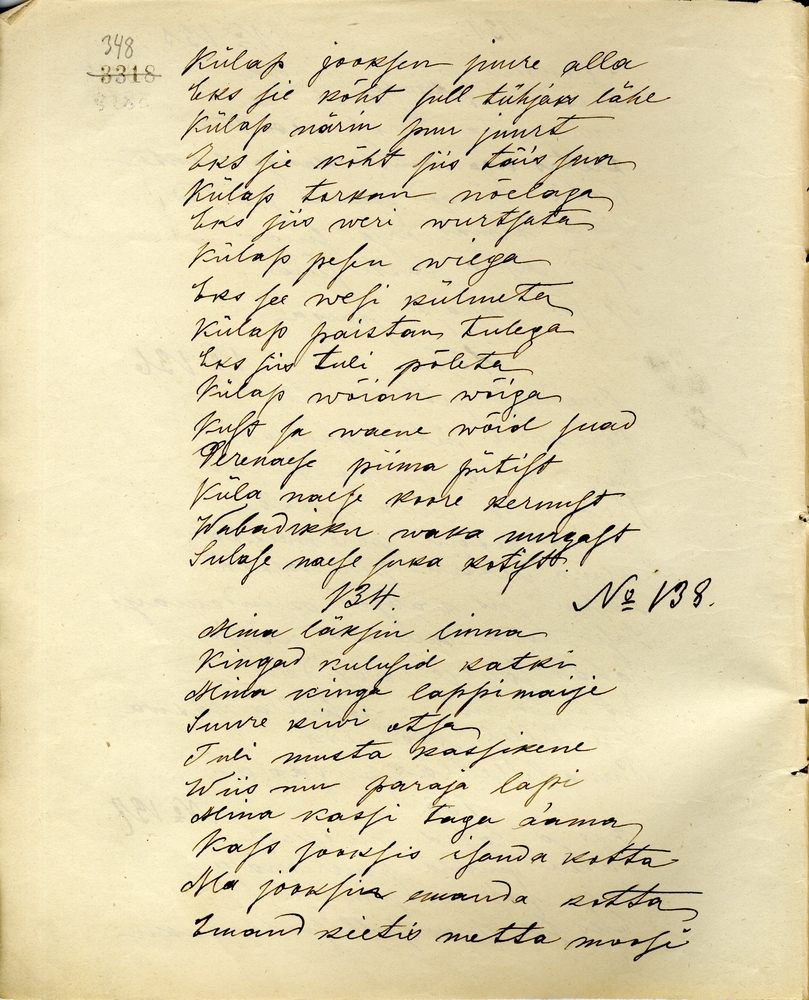 348
3318
Külap jooksen juure alla
Eks sie köht sull tühjaks lähe
Külap närin puu juurt
Eks sie köht siis täis saa
Külap torkan nõelaga
Eks siis weri wurtsata
Külap pesen wiega
Eks see wesi külmeta
Külap paistan tulega
Eks siis tuli põleta
Külap wõian wõiga
Kust sa waene wõid saad
Perenaese piima pütist
Küla naese koore kernust
Wabadikku waka nurgast
Sulase naese suka kotist.
134. № 138.
Mina läksin linna
Kingad kulusid katki
Mina kinga lappimaije
Suure kiwi otsa
Tuli musta kassikene
Wiis mu paraja lapi
Mina kassi taga aama
Kass jooksis isanda kotta
Ma jooksin emanda kotta
Emand keetis metta moosi